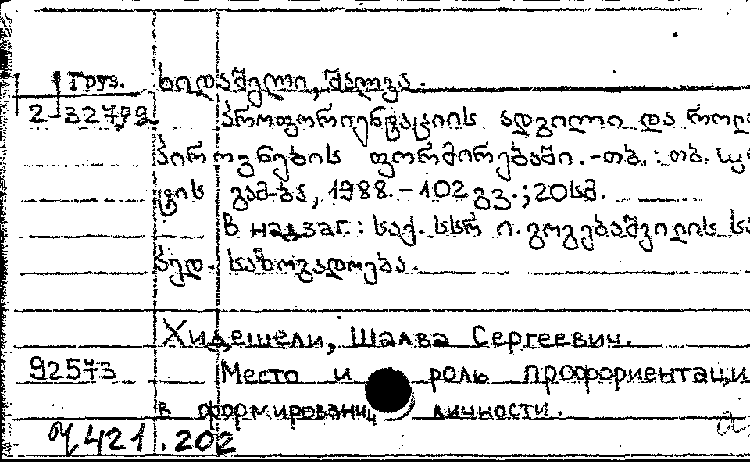 Груз. ხიდაშელი, შალვა.
2-32799 პროფორიენტაციის ადგილი და როლი
პიროვნების ფორმირებაში.-თბ.: თბ. სუ
ტის გამ-ბა, 1988.-102 გვ.; 20სმ.
В надзаг.: საქ. სსრ ი. გოგებაშვილის სა
პედ. საზოგადოება.
Хидешели, Шалва Сергеевич.
92573 Место и роль профориентаци
в формировании личности.
421.202